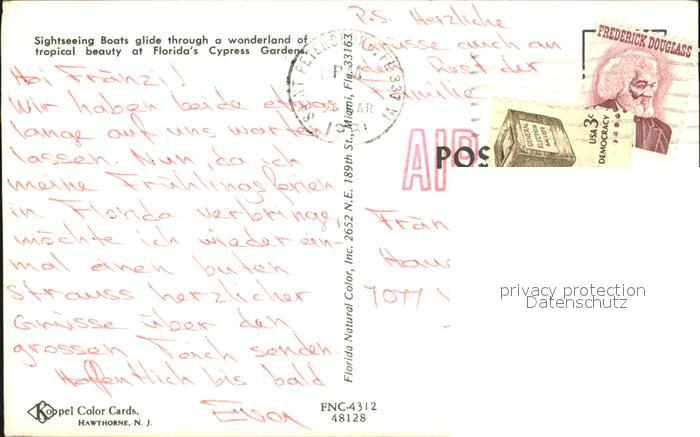 Sightseeing Boats glide through a wonderland of
tropical beauty at Florida's Cypress Gardens.
Hoi Fränzi!
Wir haben beide etwas
lange auf uns warten
lassen. Nun da ich
meine Frühlingsferien
in Florida verbringe,
möchte ich wieder ein-
mal einen bunten
Strauss herzlicher
Grüsse über den
grossen Teich senden.
Hoffentlich bis bald
P.S. Herzliche
Grüsse auch an
den Rest der
Familie
Florida Natural Color, Inc. 2652 N.E. 189th St., Miami, Fla. 33163
PM
MAR
FREDERICK DOUGLASS
GENERAL
ELECTION
BALLOT
USA 3c
DEMOCRACY
AIR
POS
Frän
Haus
7077
privacy protection
Datenschutz
Koppel Color Cards,
HAWTHORNE, N. J.
FNC-4312
48128